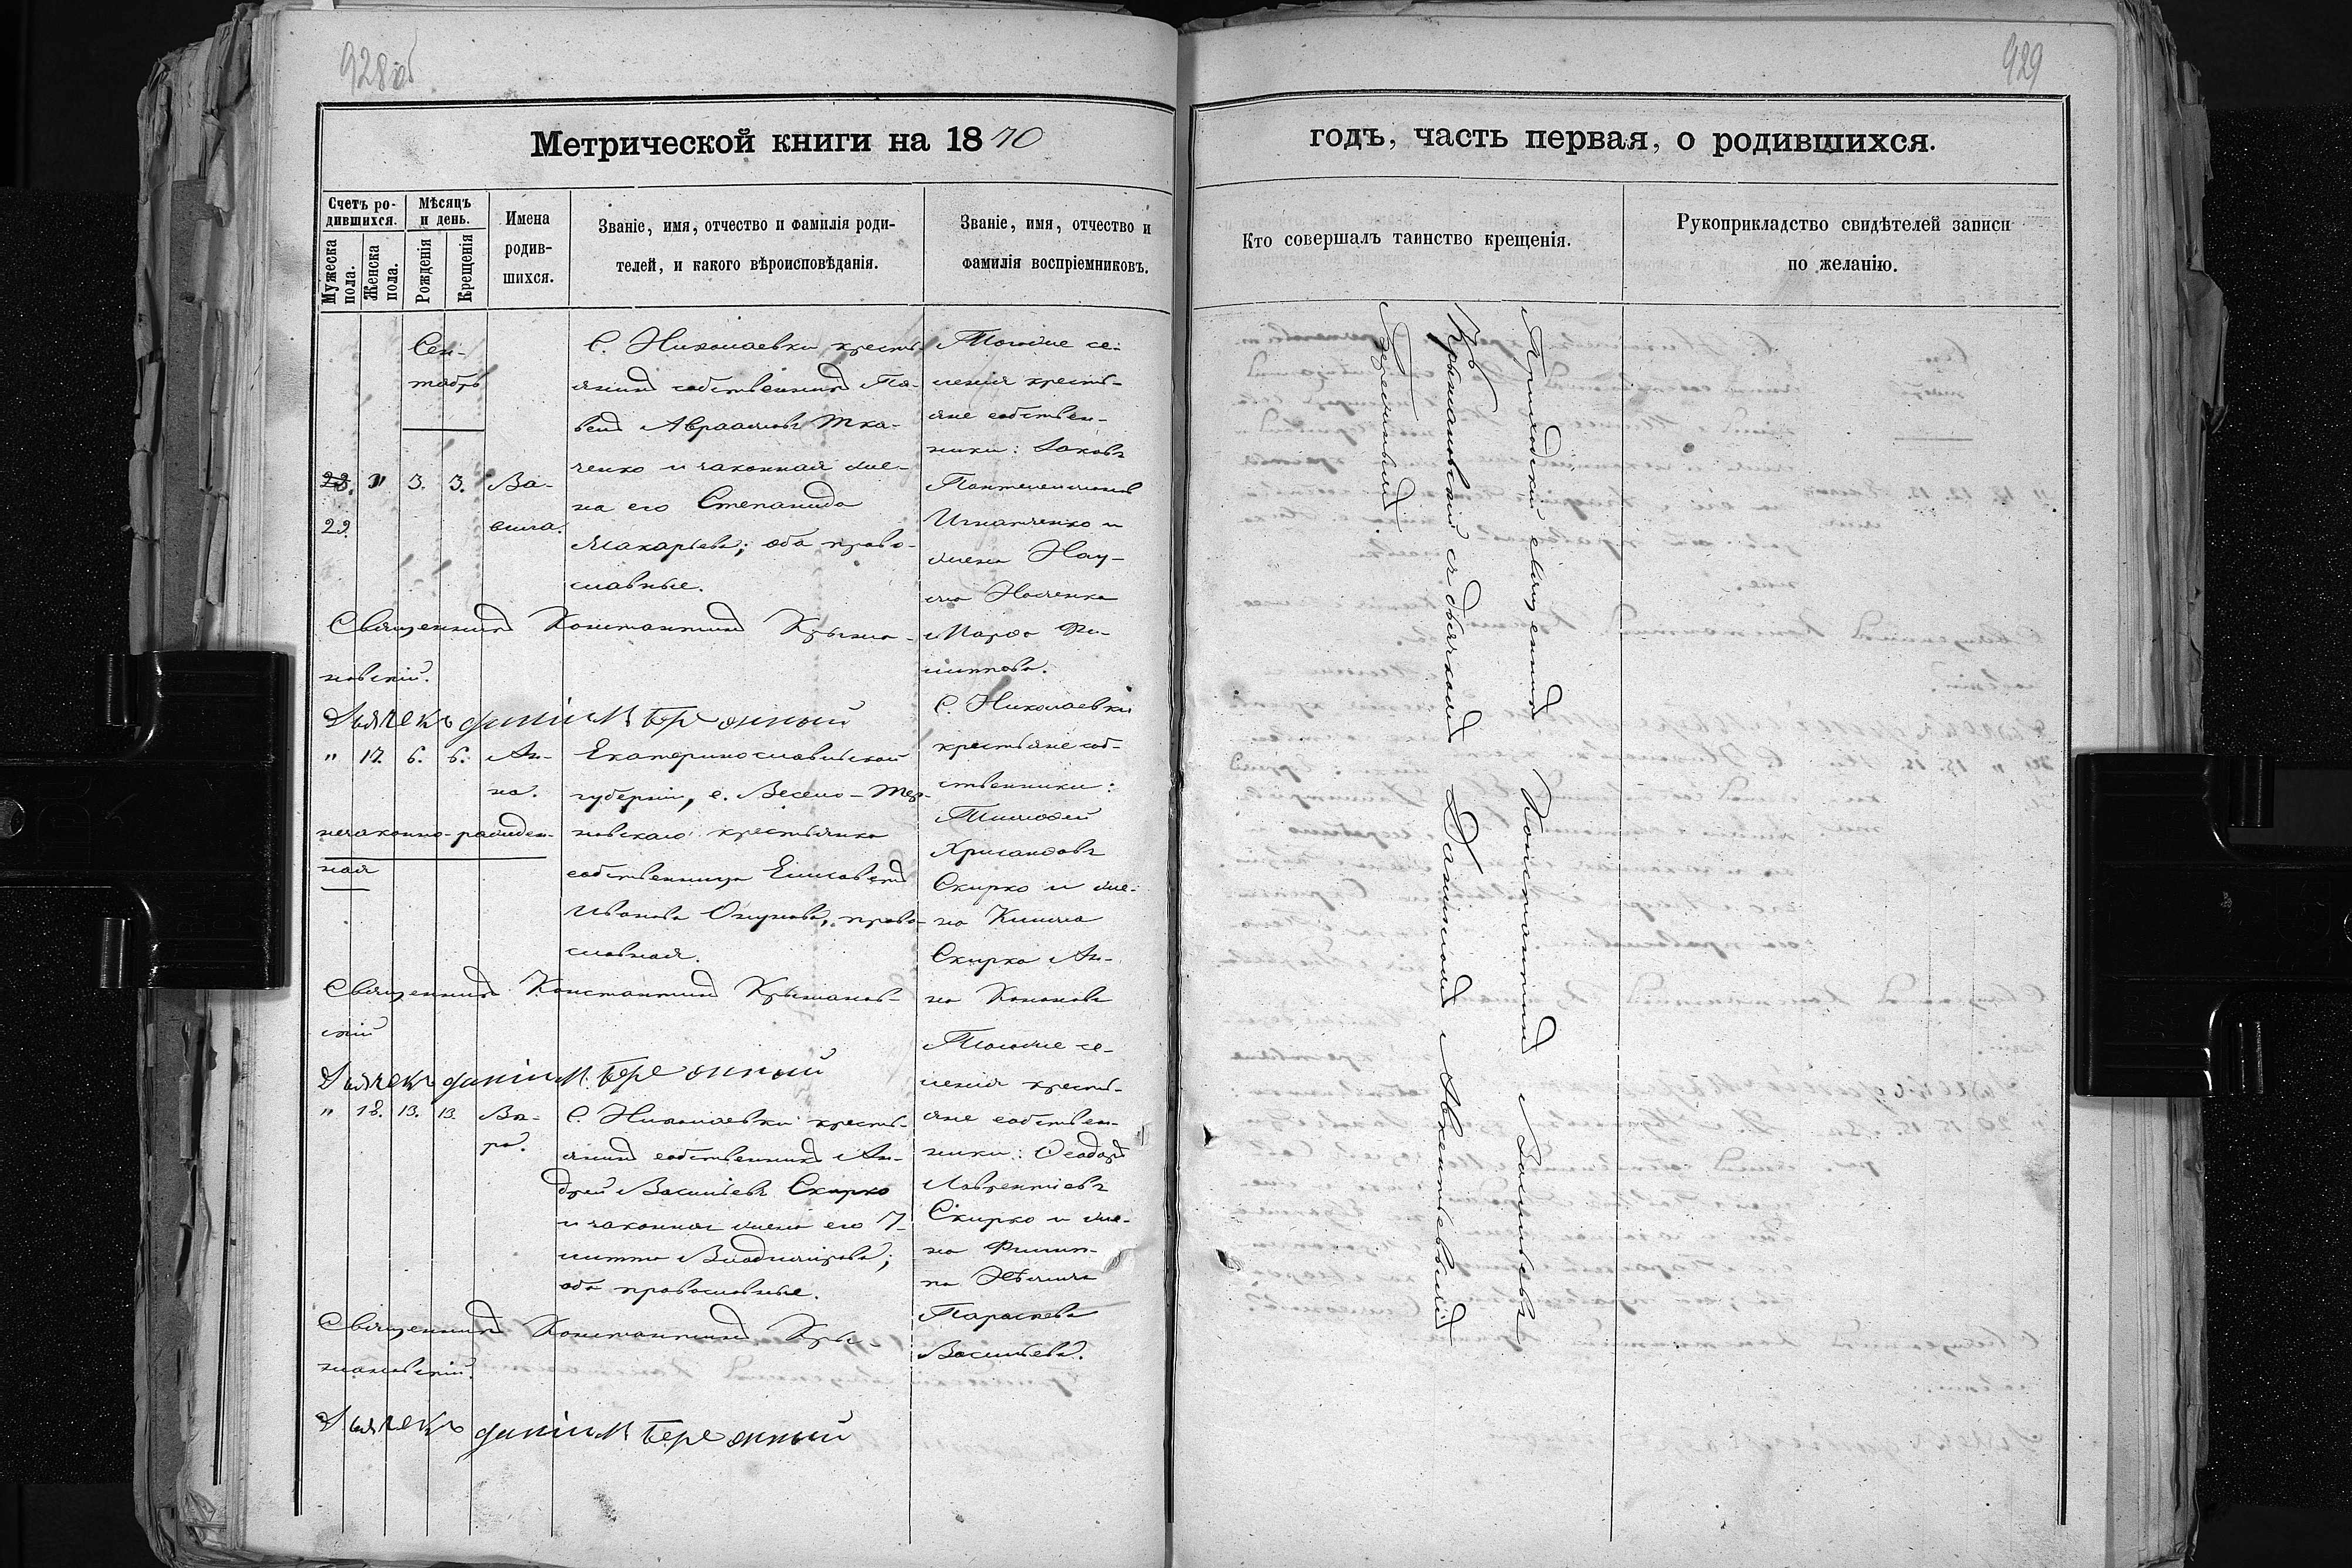 928об
929
Метрической книги на 1870
годъ, часть первая, о родившихся.
Счетъ ро-
дившихся.
Мужеска
пола.
Женска
пола.
Мѣсяцъ
и день.
Рожденія
Крещенія
Имена
родив-
шихся.
Званіе, имя, отчество и фамилія роди-
телей, и какого вѣроисповѣданія.
Званіе, имя, отчество и
фамилія воспріемниковъ.
Кто совершалъ таинство крещенія.
Рукоприкладство свидѣтелей записи
по желанію.
Сен-
тябрь
29. " 3. 3. Ва-
сила.
С. Николаевки кресть-
янинъ собственникъ Па-
велъ Авраамовъ Тка-
ченко и законная же-
на его Степанида
Макарьева; оба право-
славные.
Тогоже се-
ленія кресть-
яне собствен-
ники: Іаковъ
Пантелеимоновъ
Игнатченко и
жена Нау-
ма Носченка
Марѳа Фи-
липпова.
Священникъ Константинъ Крыжа-
новскій.
Дьячекъ Даніилъ Бережный
" 17. 6. 6. Ан-
на.
незаконно-рожден-
ная
Екатеринославской
губерніи, с. Весело-Тер-
новскаго крестьянка
собственница Елисавета
Иванова, право-
славная.
С. Николаевки
крестьяне соб-
ственники:
Тимоѳей
Хрисанѳовъ
Скирко и же-
на
Скирка Ан-
на
Священникъ Константинъ Крыжанов-
скій
Дьячекъ Даніилъ Бережный
" 18. 13. 13. Вѣ-
ра.
С. Николаевки кресть-
янинъ собственникъ Ан-
дрей Васильевъ Скирко
и законная жена его У-
литта Владимірова;
оба православные.
Тогоже се-
ленія кресть-
яне собствен-
ники: Ѳеодоръ
Лаврентіевъ
Скирко и же-
на Филип-
па
Параскева
Васильева.
Священникъ Константинъ Кры-
жановскій.
Дьячекъ Даніилъ Бережный
Приходскій священникъ Константинъ Васильевъ
Крыжановскій съ дьячкомъ Даніиломъ Авксентьевымъ
Бережнымъ.